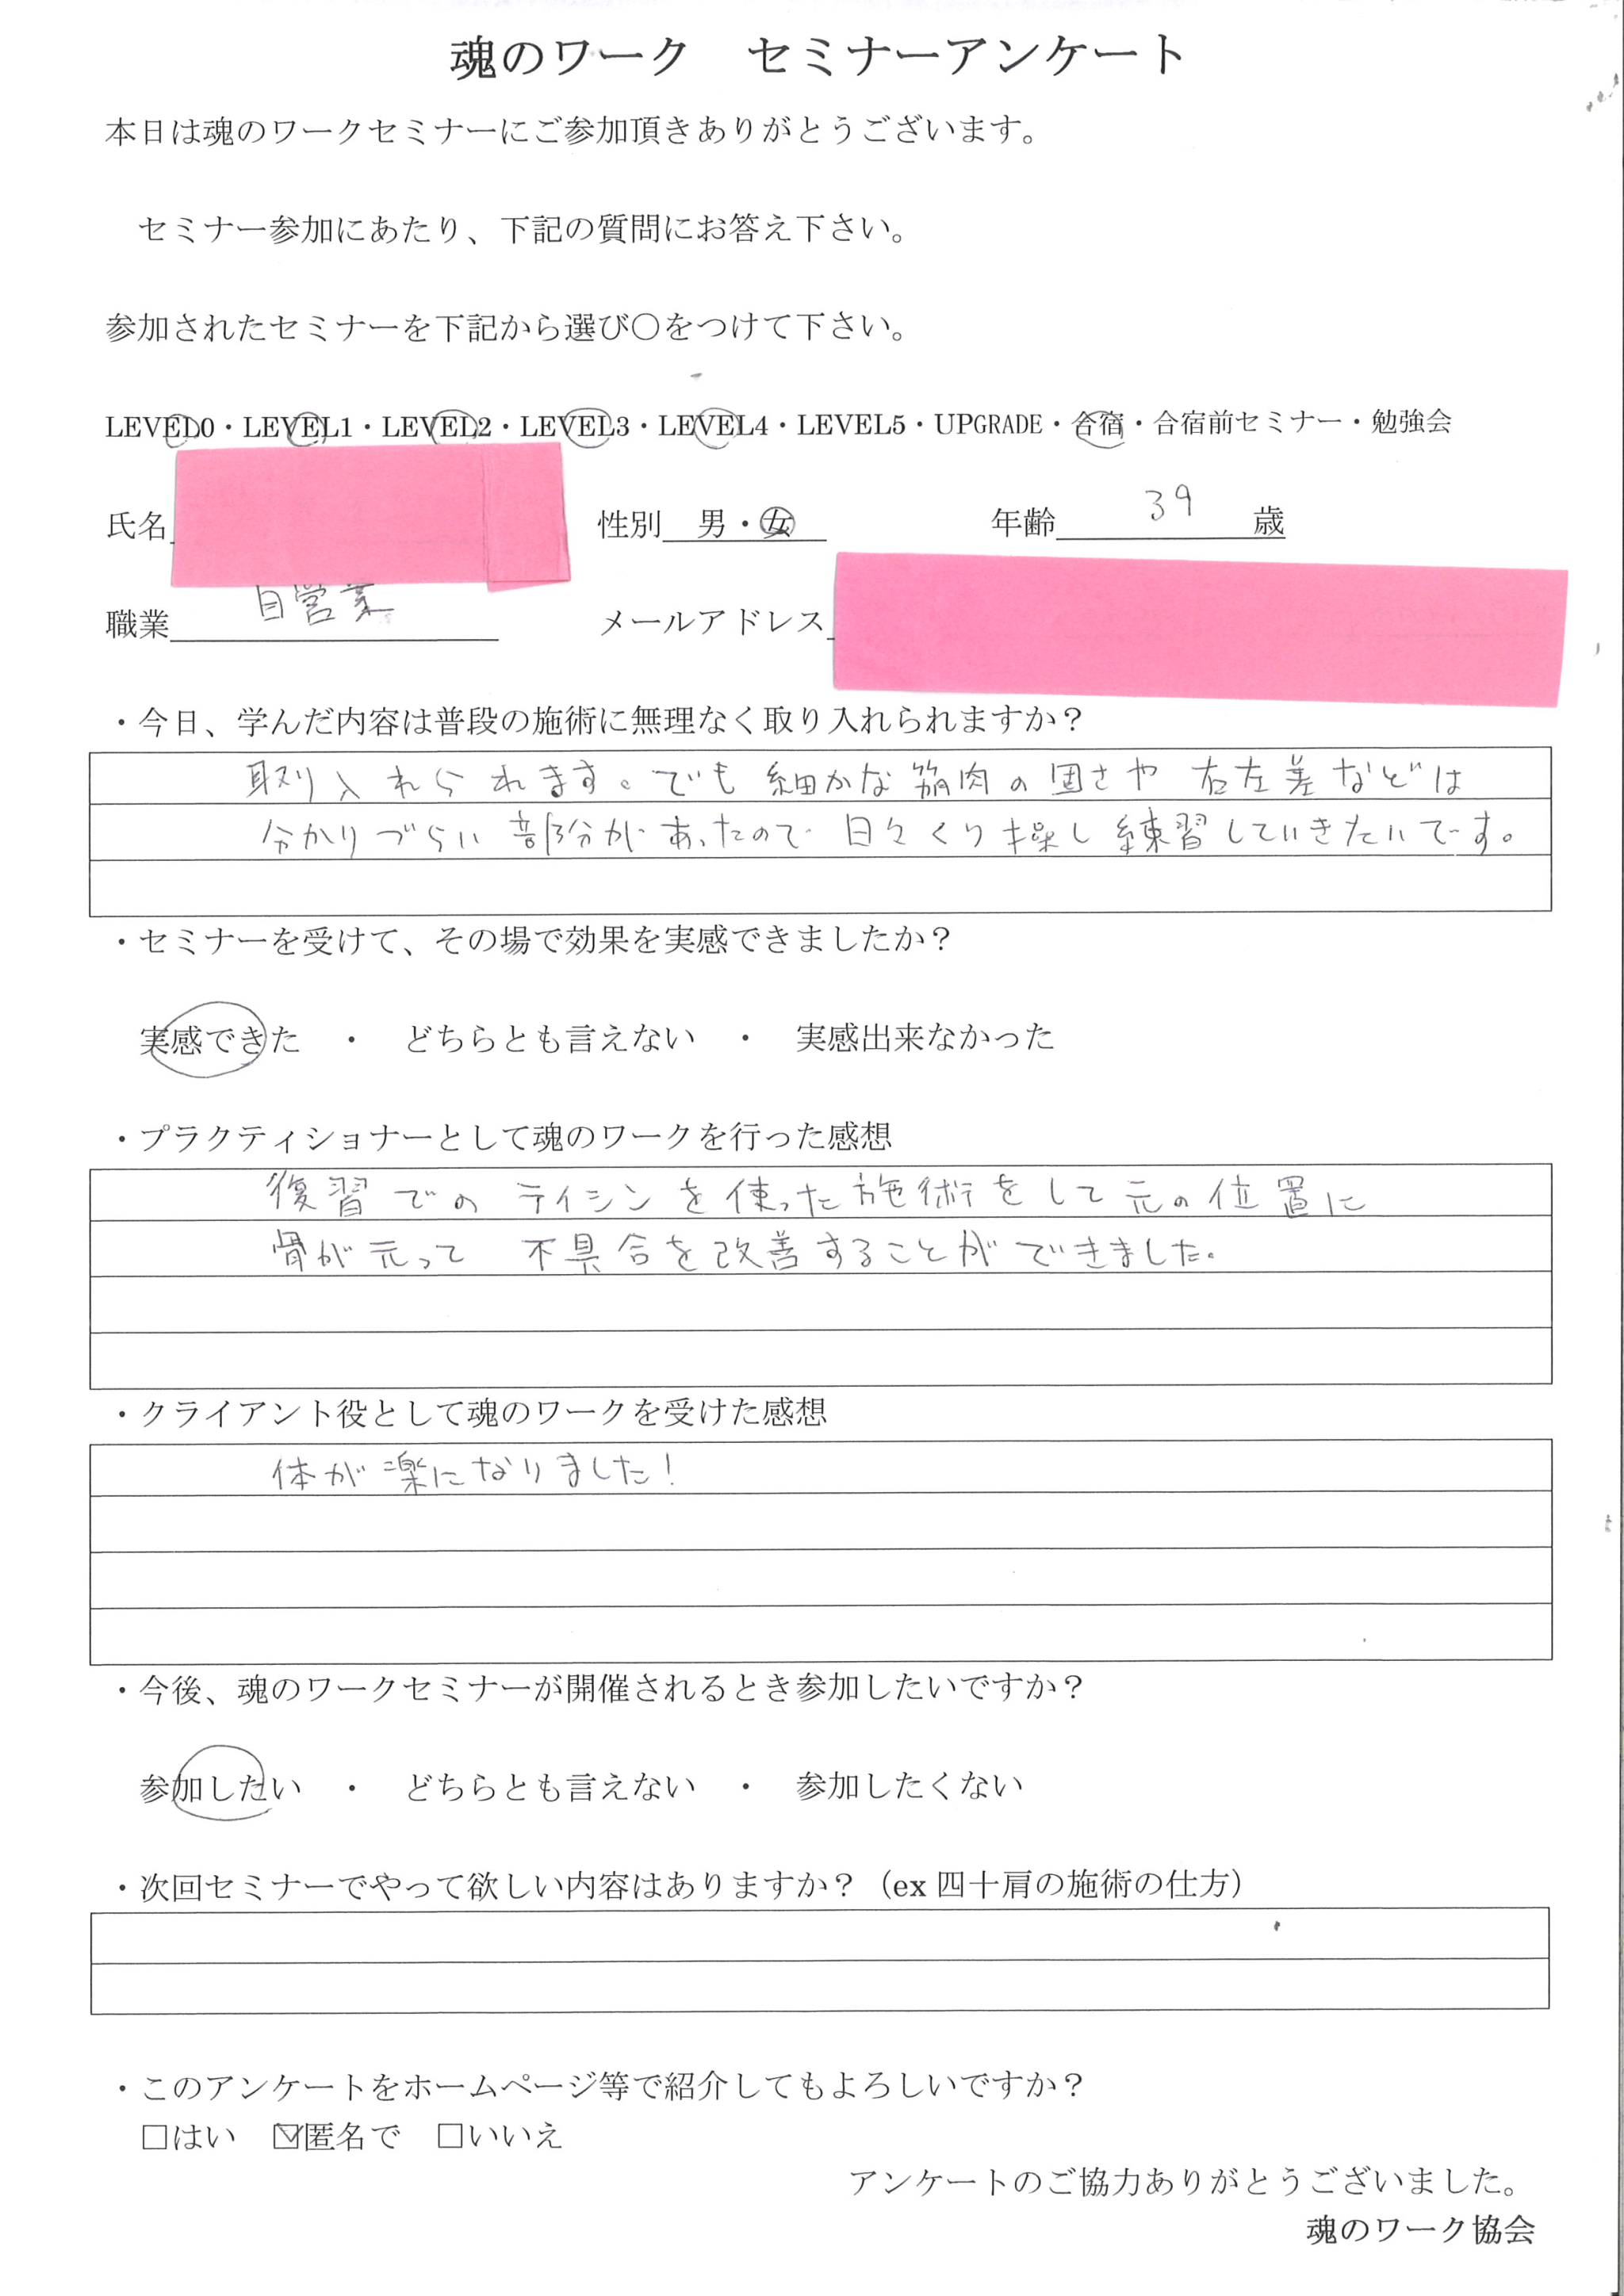 魂のワーク　セミナーアンケート
本日は魂のワークセミナーにご参加頂きありがとうございます。
セミナー参加にあたり、下記の質問にお答え下さい。
参加されたセミナーを下記から選び〇をつけて下さい。
LEVEL0・LEVEL1・LEVEL2・LEVEL3・LEVEL4・LEVEL5・UPGRADE・合宿・合宿前セミナー・勉強会
氏名　性別　男・女　年齢　39　歳
職業　自営業　メールアドレス
・今日、学んだ内容は普段の施術に無理なく取り入れられますか？
取り入れられます。でも細かな筋肉の固さや右左差などは
分かりづらい部分があったので日々くり操し練習していきたいです。
・セミナーを受けて、その場で効果を実感できましたか？
実感できた　・　どちらとも言えない　・　実感出来なかった
・プラクティショナーとして魂のワークを行った感想
復習でのテイシンを使った施術をして元の位置に
骨が元って　不具合を改善することができました。
・クライアント役として魂のワークを受けた感想
体が楽になりました！
・今後、魂のワークセミナーが開催されるとき参加したいですか？
参加したい　・　どちらとも言えない　・　参加したくない
・次回セミナーでやって欲しい内容はありますか？（ex 四十肩の施術の仕方）
・このアンケートをホームページ等で紹介してもよろしいですか？
□はい　☑匿名で　□いいえ
アンケートのご協力ありがとうございました。
魂のワーク協会